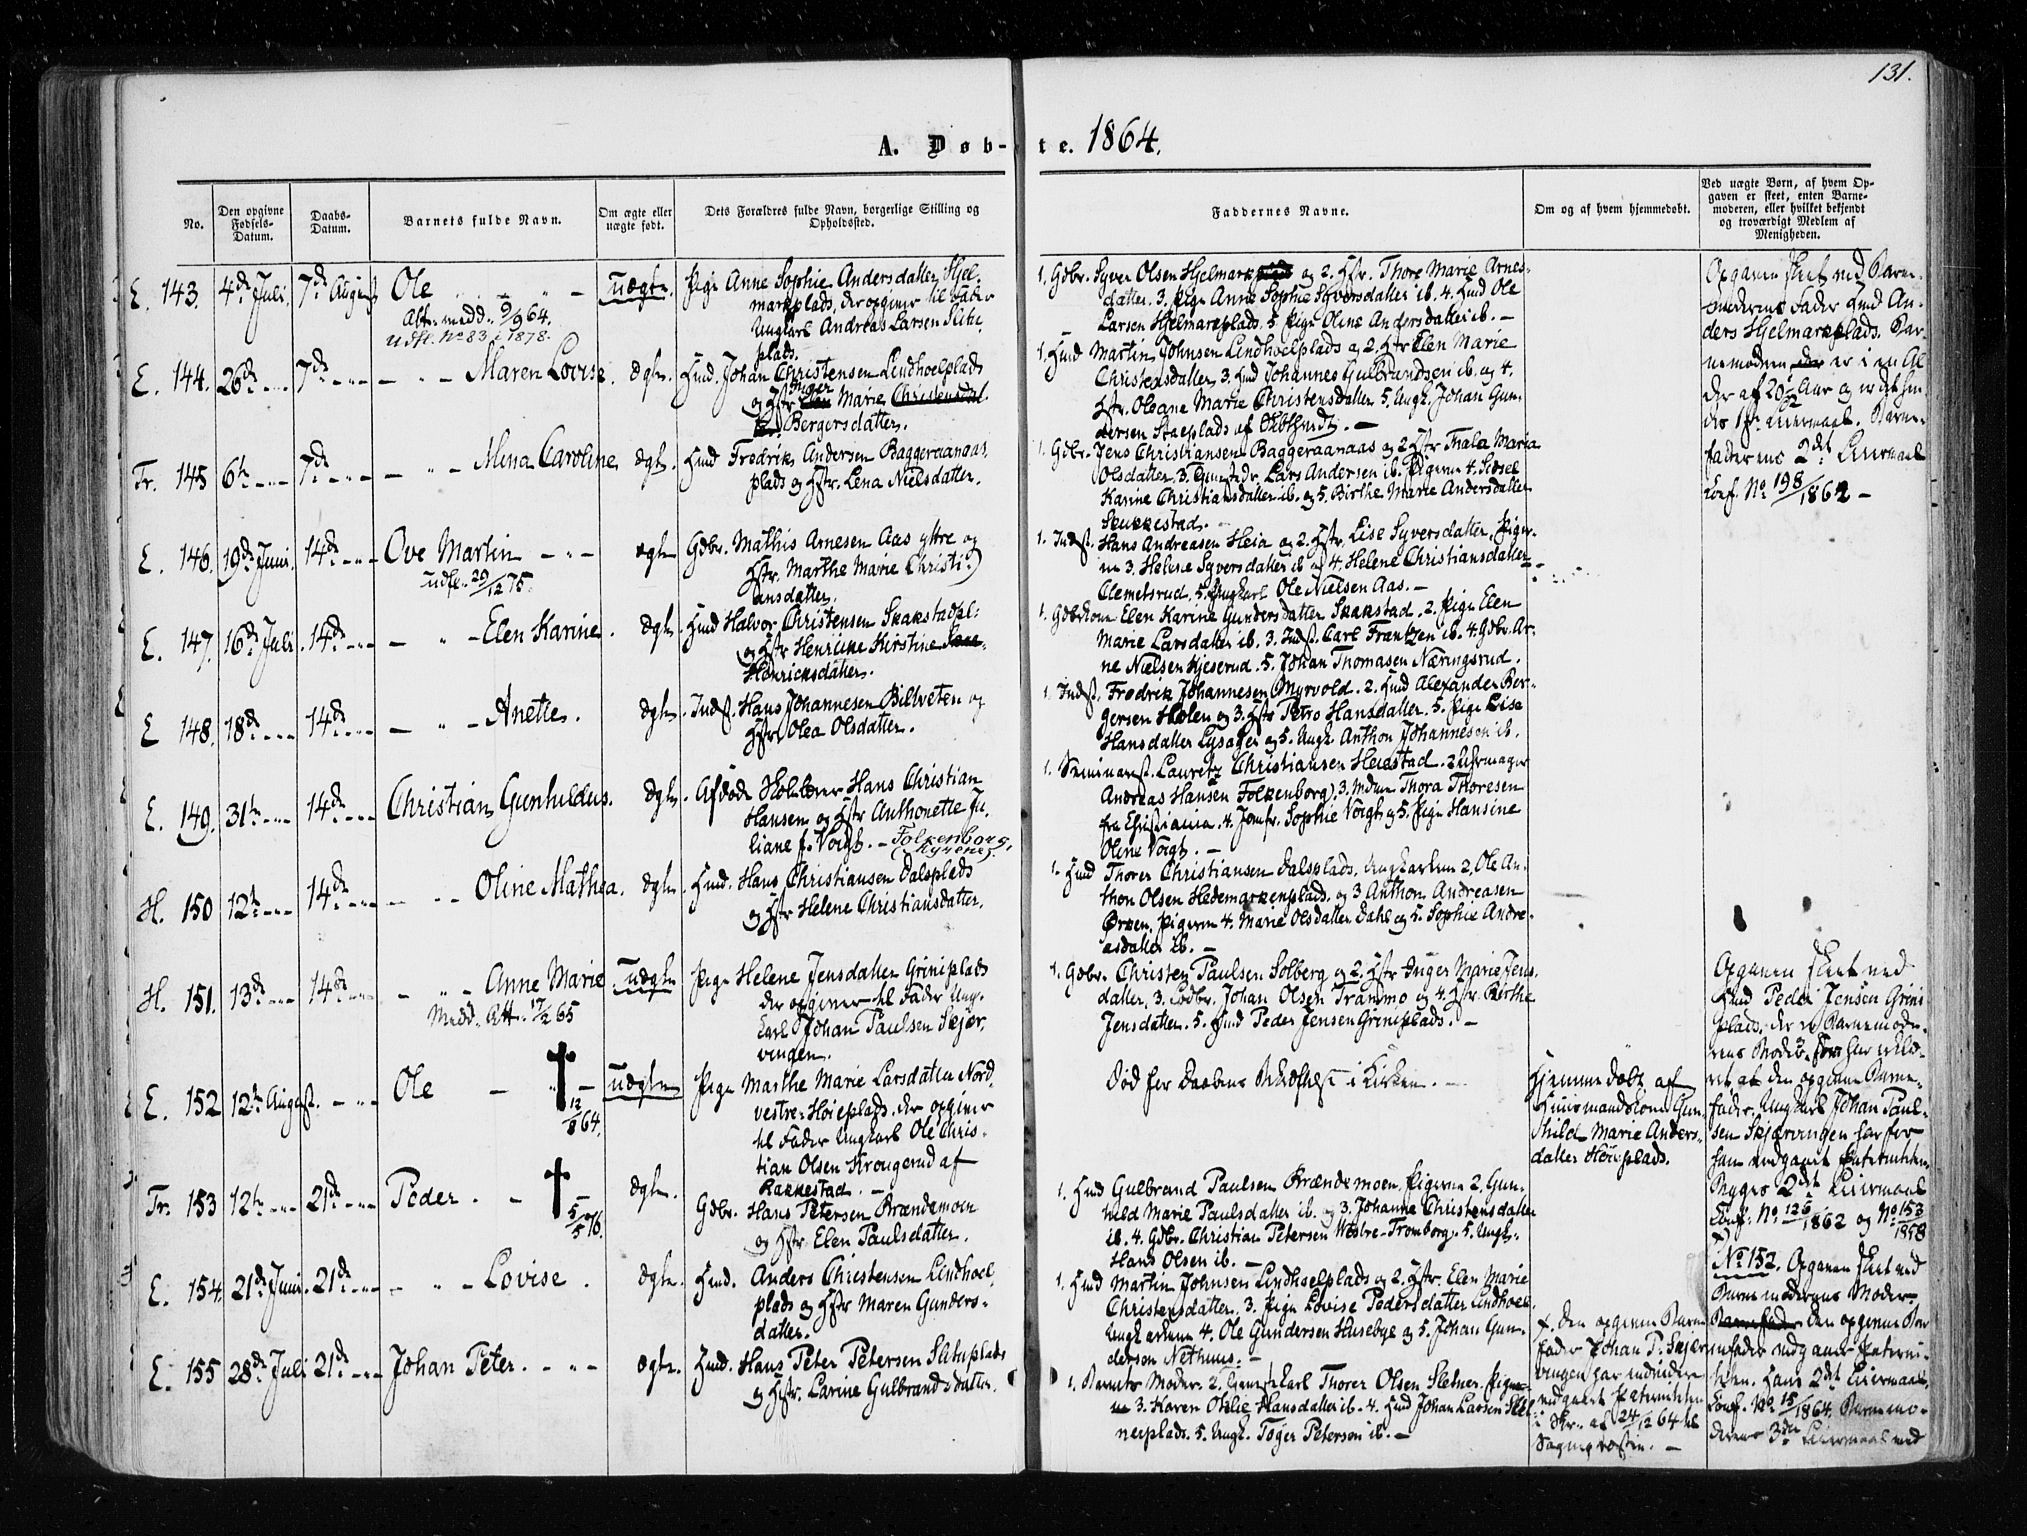 131.
A. Døb- te. 1864.
No.
Den opgivne Fødsels-Datum.
Daabs-Datum.
Barnets fulde Navn.
Om ægte eller uægte født.
Dets Forældres fulde Navn, borgerlige Stilling og Opholdssted.
Faddernes Navne.
Om og af hvem hjemmedøbt.
Ved uægte Børn, af hvem Opgaven er skeet, enten Barnemoderen, eller hvilket bekjendt og troværdigt Medlem af Menigheden.
E. 143. 4de Juli. 7de August Ole uægte.
Att. medd. 9/9 64.
udfl. No 83 i 1878.
Pige Anne Sophie Andersdatter Hjel-
markplads, der opgiver til Fader
Ungkarl Andreas Larsen Slitu
plads.
1. Gdbr. Syver Olsen Hjelmark og 2. Hstr. Thore Marie Arnes-
datter. 3. Pige Anne Sophie Syversdatter ib. 4. Hmd Ole
Larsen Hjelmarkplads. 5. Pige Oline Andersdatter ib. -
Opgaven skeet ved Barne-
moderens Fader Hmd An-
ders Hjelmarkplads. Bar-
nemoderen er i en Al
der af 20 1/2 Aar og er det hen
des 1ste Leiermaal. Barne-
faderens 2det Leiermaal
Conf. No 198/1862 -
E. 144. 26de 7de Maren Lovise. ægte.
Hmd. Johan Christensen Lindhoelplads
og Hstr Inger Marie
Bergersdatter.
1. Hmd Martin Johnsen Lindhoelplads og 2. Hstr Elen Marie
Christensdatter. 3. Hmd Johannes Gulbrandsen ib. og 4.
Hstr. Oleane Marie Christensdatter. 5. Ungk. Johan Gun-
dersen
Tr. 145 6te 7de Mina Caroline ægte.
Hmd Fredrik Andersen Baggeraanaas
plads og Hstr. Lena Nielsdatter.
1. Gdbr. Jens Christiansen Baggeraanaas og 2 Hstr Thala Maria
Olsdatter. 3. Lars Andersen ib. Pigerne 4. Sidsel
Karine Christiansdatter ib. og 5. Birthe Marie Andersdatter
Skukkestad.
E. 146. 19de Juni. 14de Ove Martin ægte
udfl. 29/12 75.
Gdbr. Mathis Arnesen Aas ytre og
Hstr. Marthe Marie Christi-
ansdatter.
1. Indst. Hans Andreasen Heia og 2. Hstr. Lise Syversdatter. Piger-
ne 3. Helene Syversdatter ib og 4. Helene Christiansdatter
Clemetsrud. 5. Ungkarl Ole Nielsen Aas. -
E. 147. 16de Juli 14de Elen Karine. ægte.
Hmd Halvor Christensen Skakstadpl:
og Hstr Henricke Kirstine
Henricksdatter.
1. Gdbrkone Elen Karine Gundersdatter Skakstad. 2. Pige Elen
Marie Larsdatter ib. 3. Indst. Carl Frantzen ib. 4. Gdbr. Ar-
ne Nielsen Kjeserud. 5. Johan Thomasen Næringsrud.
E 148. 18de 14de Anette. ægte.
Indst. Hans Johannesen Billveten og
Hstr. Olea Olsdatter.
1. Indst. Fredrik Johannesen Myrvold. 2. Hmd Alexander Ber-
gersen Holen og 3. Hstr Petro Hansdatter. 5. Pige Lise
Hansdatter Lysager og 5. Ungk. Anthon Johannesen ib.
E. 149. 31te 14de Christian Gunhildus. ægte.
Afdøde Skolelærer Hans Christian
Hansen og Hstr Anthonette Ju-
liane f. Voigt. - Folkenborg,
(Kyrene).
1. Seminarst. Lauretz Christiansen Henstad. 2 Uhrmager
Andreas Hansen Folkenborg. 3. Mdme Thora Thoresen
fra Christiania. 4. Jomfr. Sophie Voigt og 5. Pige Hansine
Oline Voigt. -
H. 150 12te 14de Oline Mathea. ægte.
Hmd. Hans Christiansen Dalsplads
og Hstr Helene Christiansdatter.
1. Hmd Thorer Christiansen Dalsplads. Ungkarlene 2. Ole An-
thon Olsen Hedemarkenplads. og 3 Anthon Andreasen
Ørken. Pigerne 4. Marie Olsdatter Dahl og 5. Sophie Andre-
asdatter ib. -
H. 151. 13de 14de Anne Marie uægte
Medd. Att. 17/2 65
Pige Helene Jensdatter Griniplads
der opgiver til Fader Ung-
karl Johan Paulsen Skjær-
vingen.
1. Gdbr. Christen Paulsen Solberg og 2. Hstr Inger Marie Jens-
datter. 3. Lodbr. Johan Olsen Trammo og 4. Hstr. Birthe
Jensdatter. 5. Hmd Peder Jensen Griniplads. -
Opgaven skeet ved
Hmd Peder Jensen Grini
plads, der er Barnemode-
rens Broder. har erklæ-
ret at den opgivne Barne-
fader, Ungkarl Johan Paul-
sen Skjærvingen har for
ham vedgaaet Paterniteten.
2det Leiermaal
Conf. No 126/1862 og No 153/1858
E. 152 12te August. Ole † 12/8 64. uægte
Pige Marthe Marie Larsdatter Nord
vestre-Høieplads, der opgiver
til Fader Ungkarl Ole Chris-
tian Olsen Krougerud af
Rakkestad. -
Død før Daabens Bekræftelse i Kirken. -
Hjemmedøbt af
Huusmandskone Gun-
hild Marie Anders-
datter Høieplads.
No 152. Opgaven skeet ved
Barnemoderens Moder.
den opgivne Bar
nefader vedgaaer Paterni-
teten. Hans 2det Leiermaal
Conf. No 15/1864. Barnemo-
derens 3die Leiermaal ved
Tr. 153 12te 21de Peder. † 5/5 76. ægte.
Gdbr. Hans Petersen Brændemoen
og Hstr Elen Paulsdatter.
1. Hmd Gulbrand Paulsen Brændemoen. Pigerne 2. Gun-
hild Marie Paulsdatter ib. og 3. Johanne Christensdatter
ib. 4. Gdbr. Christian Petersen Westre-Tromborg. 5. Ungk.
Hans Olsen ib. -
E. 154. 21de Juni. 21de Lovise. ægte.
Hmd. Anders Christensen Lindhoel
plads og Hstr Maren Gunders-
datter.
1. Hmd Martin Johnsen Lindhoelplads og 2. Hstr. Elen Marie
Christensdatter. 3. Pige Lovise Pedersdatter Lindhoel
Ungkarlene 4. Ole Gundersen Husebye og 5. Johan Gun-
dersen Nethuus. -
x. Den opgivne Barne
fader Johan P. Skjær
vingen har
vedgaaet Paterniteten
i Skr. af 24/12 64 til
Sognepræsten. -
E. 155 28de Juli 21de Johan Peter. ægte.
Hmd. Hans Peter Petersen Slituplads
og Hstr. Larine Gulbrandsdatter.
1. Barnets Moder. 2. Thorer Olsen Sletner. Piger-
ne 3. Karen Otilie Hansdatter ib. 4. Hmd Johan Larsen Slet-
nerplads. 5. Ungk. Tøger Petersen ib. -